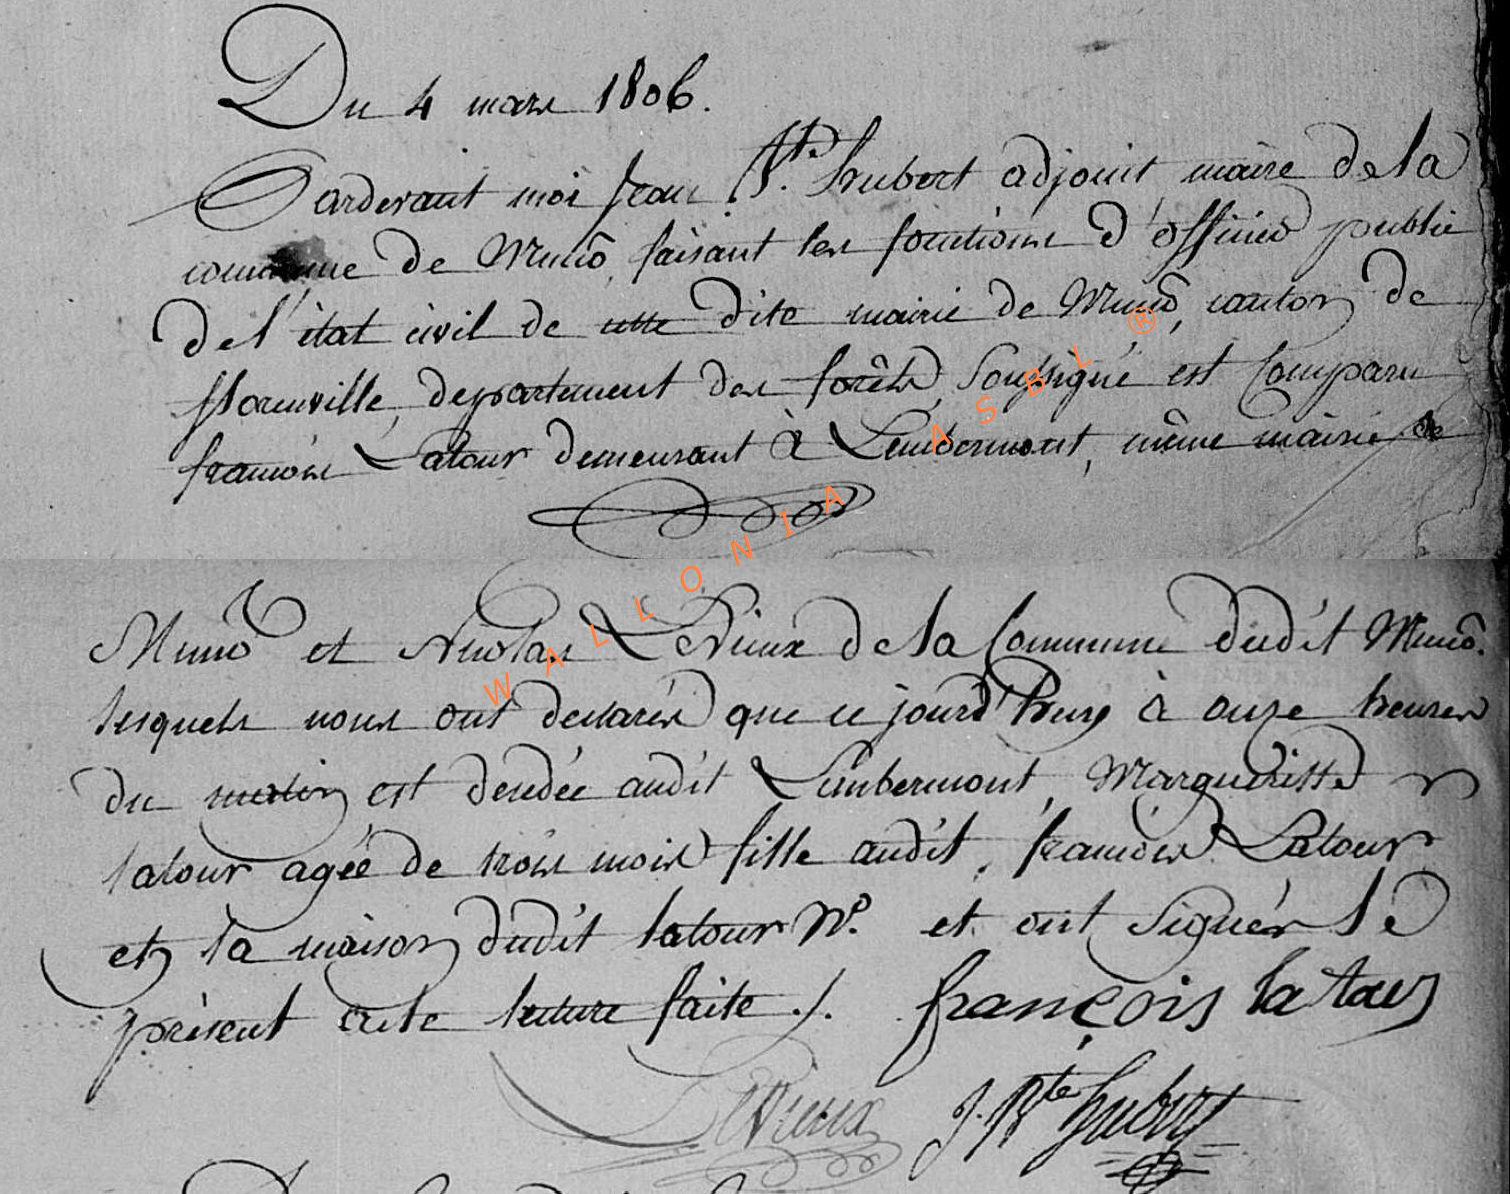 Du 4 mars 1806.
Pardevant moi Jean Bte. hubert adjoint maire de la
commune de Muno, faisant les fonctions d'officier public
de l'état civil de cette dite mairie de Muno, canton de
florenville, departement des forêts, soussigné est comparu
françois Latour demeurant à Lembermont, même mairie de
Muno et Nicolas LeVieux de la Commune dudit Muno.
lesquels nous ont declarés que ce jourd'huy à onze heures
du matin est decedée audit Lembermont, Margueritte
latour agée de trois mois fille audit, françois Latour
et la maison dudit latour No. et ont signér le
présent acte lecture faite ./.
françois la tour
LeVieux
J. Bte hubert
WALLONIA ASBL ®